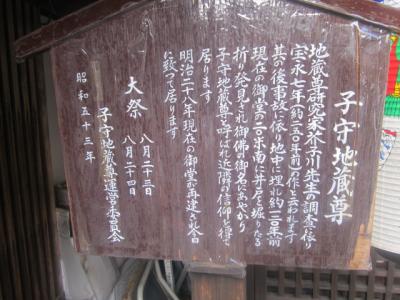 子守地蔵尊
地蔵尊研究家芥子川先生の調査に依り
宝永七年(約二五〇年前)の作と云われます
其の後事故に依り地中に埋れ約一二〇年前
現在の御堂の二〇米南に井戸を掘りたる
折り発見され御佛の御名にあやかり
子守地蔵尊と呼ばれ近隣の信仰を得て
居ります
明治二十八年現在の御堂が再建され今日
に致って居ります
大祭 八月二十三日
八月二十四日
子守地蔵尊運営委員会
昭和五十三年